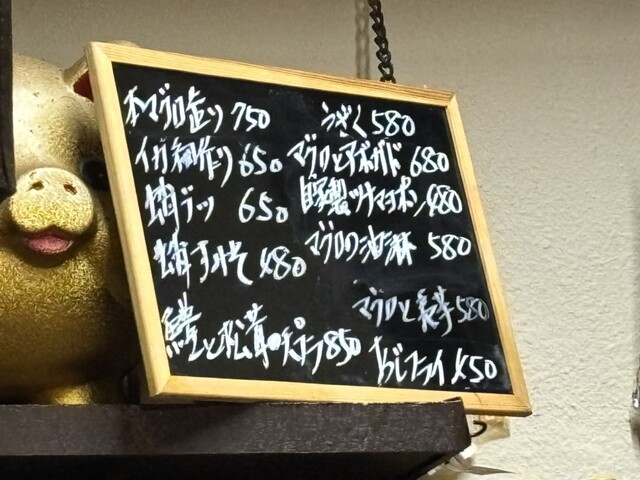 本マグロ造り 750
イカ細作り 650
蛸ブツ 650
蛸すみそ 480
鱧と松茸の天プラ 850
うざく 580
マグロとアボガド 680
自家製ツナマヨポン 480
マグロの油淋 580
マグロと長芋 580
あじフライ 450